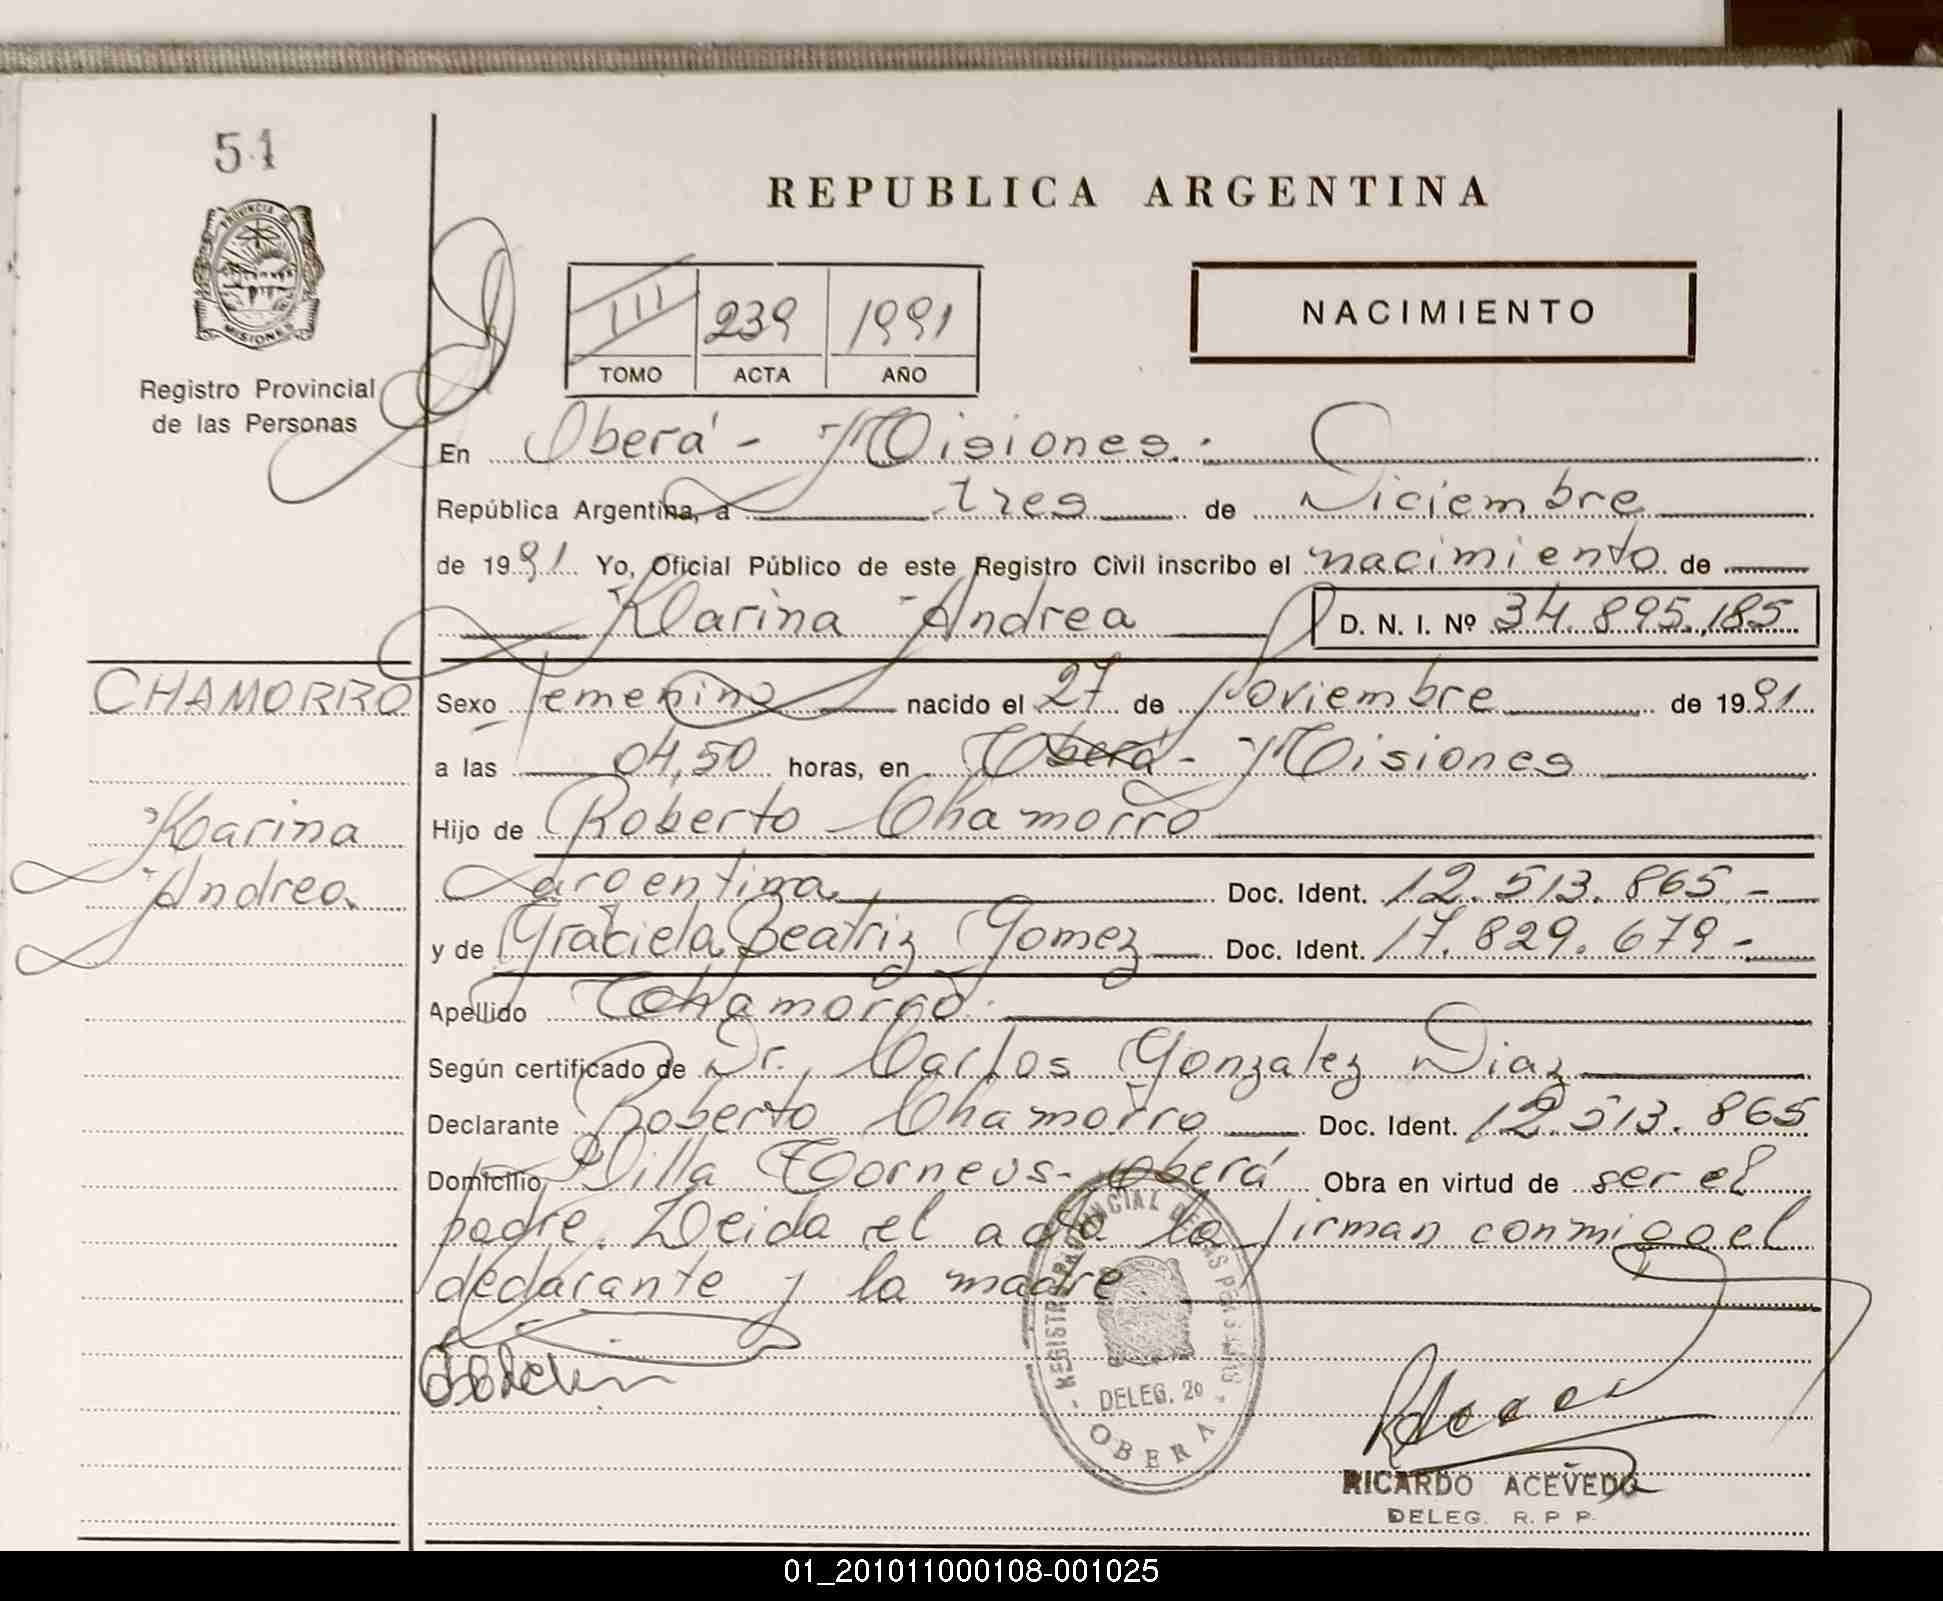 51
PROVINCIA D
MISIONES
Registro Provincial
de las Personas
REPUBLICA ARGENTINA
III 239 1991
TOMO ACTA AÑO
NACIMIENTO
En Oberá - Misiones.
República Argentina, a tres de Diciembre
de 1991 Yo, Oficial Público de este Registro Civil inscribo el nacimiento de
Karina Andrea D. N. I. Nº 34.895.185
CHAMORRO
Karina
Andrea
Sexo femenino nacido el 27 de Noviembre de 1991
a las 04,50 horas, en Oberá - Misiones
Hijo de Roberto Chamorro
argentina Doc. Ident. 12.513.865-
y de Graciela Beatriz Gomez Doc. Ident. 17.829.679-
Apellido Chamorro
Según certificado de Dr. Carlos Gonzalez Diaz
Declarante Roberto Chamorro Doc. Ident. 12.513.865
Domicilio Villa Torneus - Oberá Obra en virtud de ser el
padre. Leida el acta la firman conmigo el
declarante y la madre
REGISTRO PROVINCIAL DE LAS PERSONAS
DELEG. 20
OBERA
RICARDO ACEVEDO
DELEG. R. P. P.
01_201011000108-001025